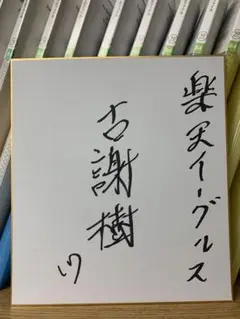 楽天イーグルス
古謝樹